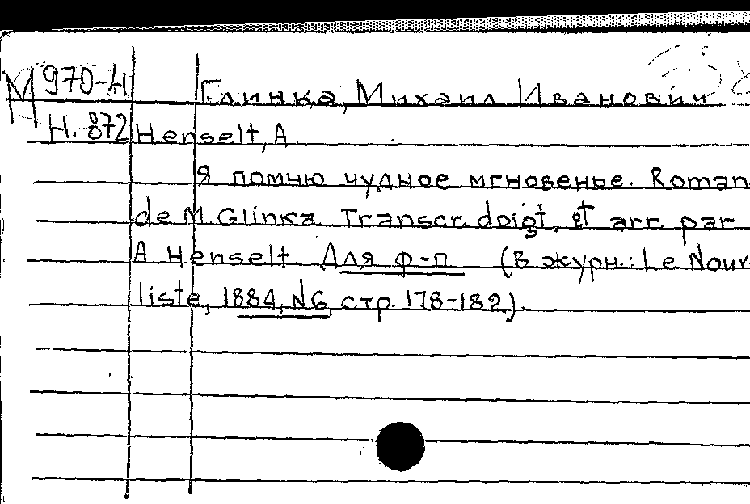 М 970-4 Глинка, Михаил Иванович
Н. 872 Henselt, A
Я помню чудное мгновенье. Roman
de M. Glinka. Transcr. doigt. et arr. par
A Henselt Для ф-п (в журн.: Le Nouv
liste, 1884, N6, стр. 178-182).